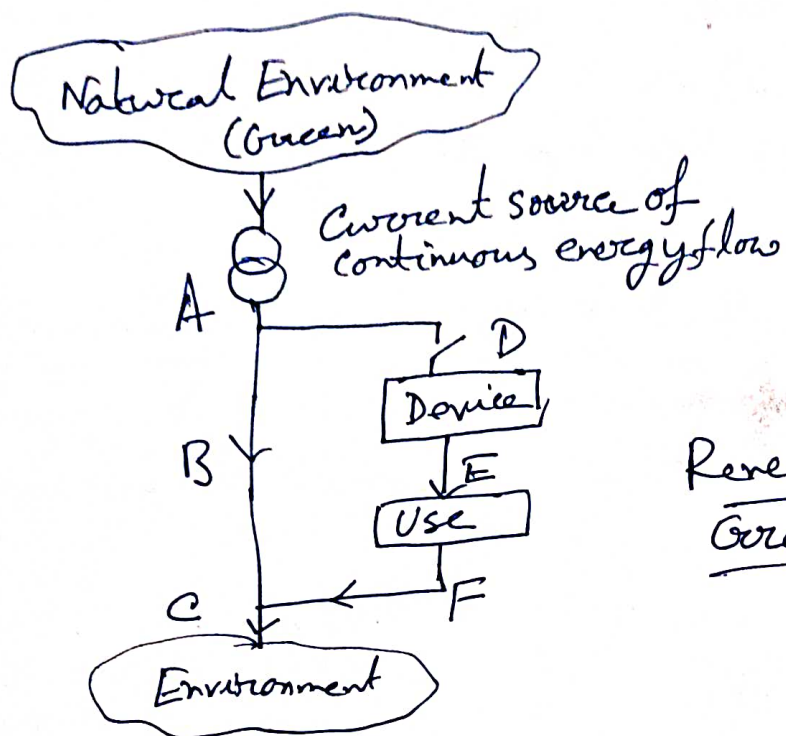 Natural Environment
(Green)
Current source of
continuous energy flow
A
D
Device
B
E
Use
C
F
Environment